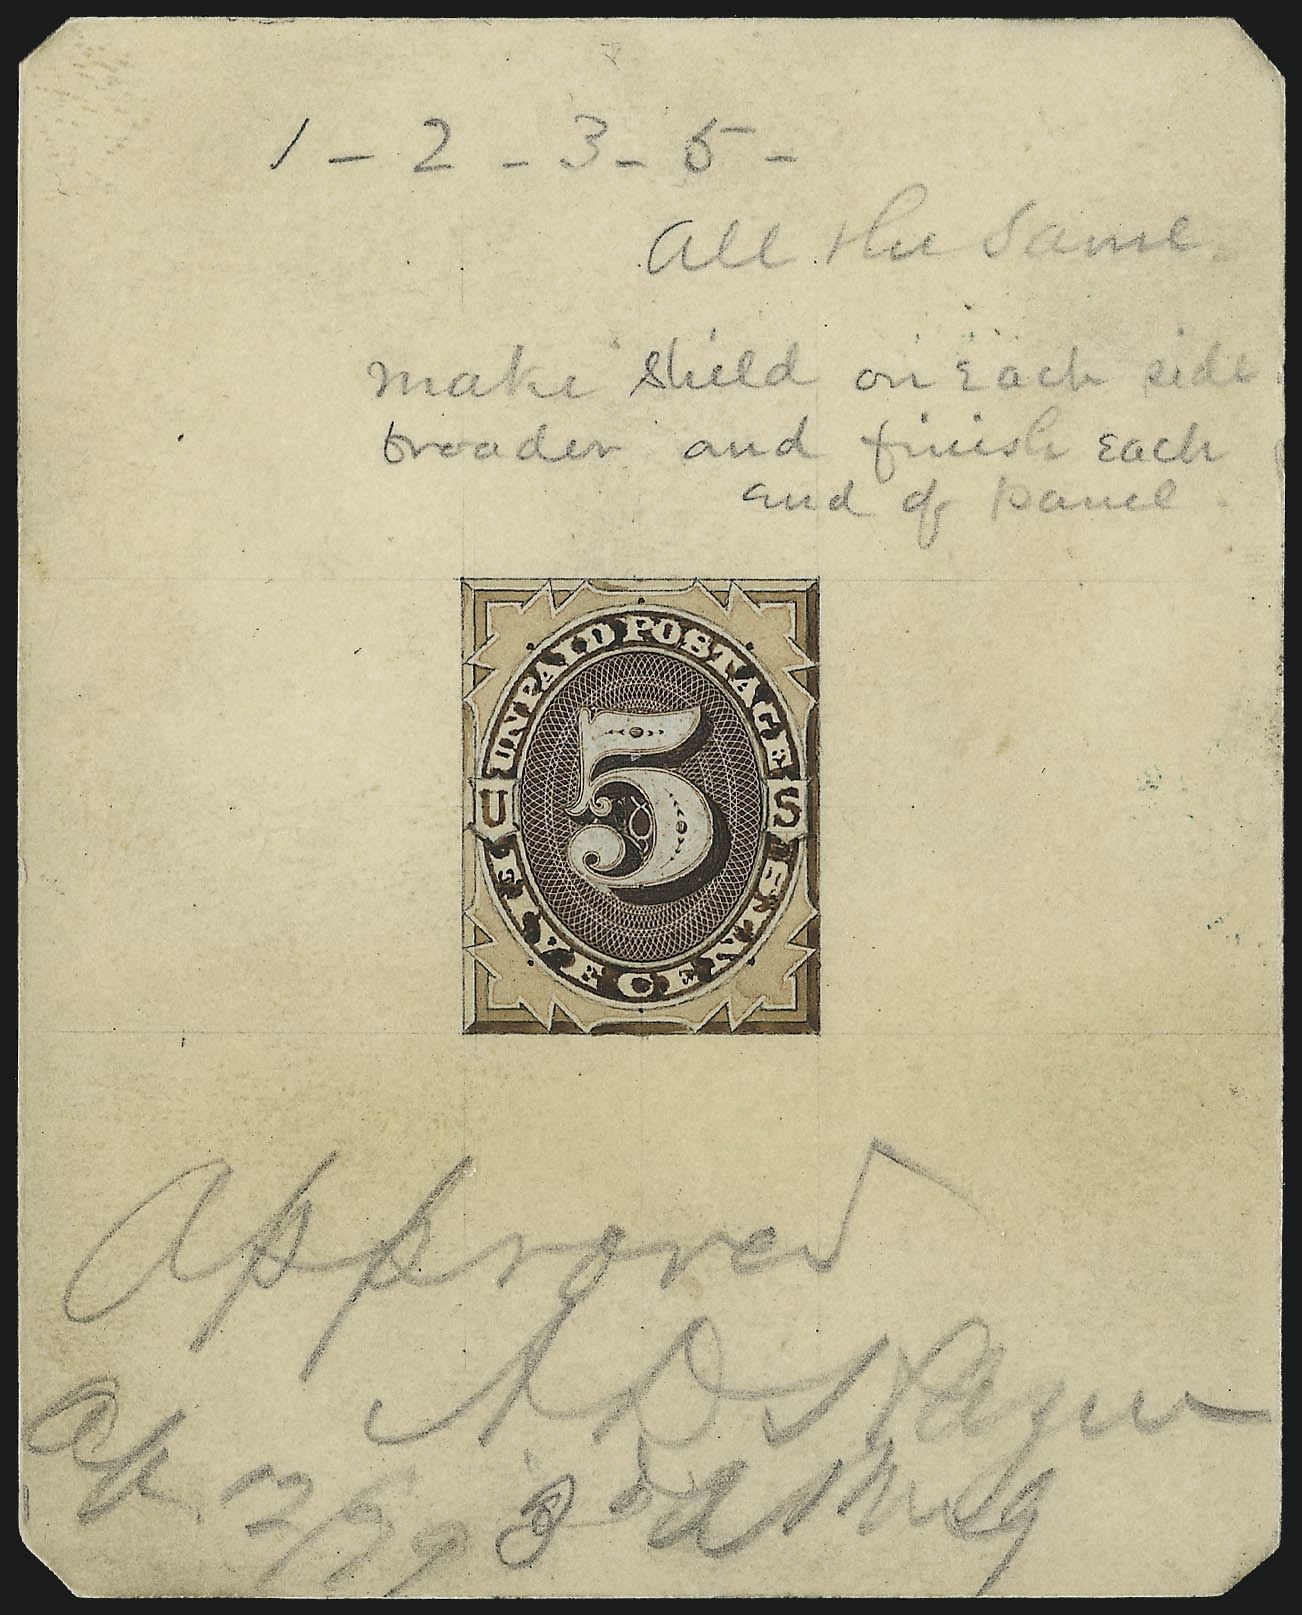 1 - 2 - 3 - 5 -
All the Same
make shield on Each side
broader and finish Each
End of panel
UNPAID POSTAGE
5
U S
FIVE CENTS
Approved
A D
3d